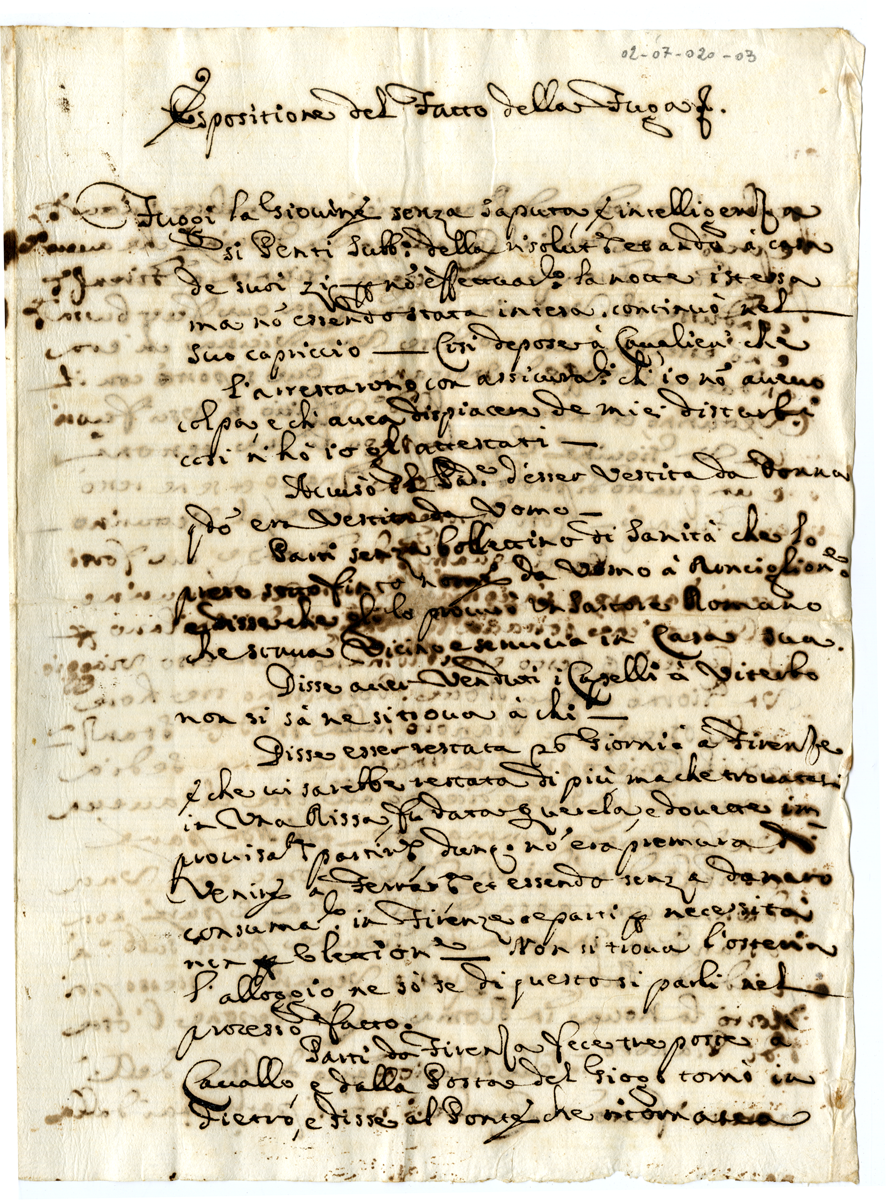 02-07-020-03
Espositione del Fatto della Fuga
Fuggì la Giovine senza saputa e intelligenza
si Pentì subb.º della risolut.e es andò à
de suoi zij p nõ effettuarlo la notte istessa
ma nõ essendo stata intesa, continuò nel
suo capriccio — Così depose à Cavalieri che
l'arrestarono, con assicurar.li ch'io nõ avevo
colpa e ch'avea dispiacere de miei disturbi
così n'hò io gl'attestati —
Accusò Pad.e d'esser Vestita da Donna
qdo era Vestita da Uomo —
Partì senza bollettino di Sanità che lo
prese sotto finto nome da Uomo à Ronciglione
e disse che glie lo provvide un Sartore Romano
che stava Vicino e serviva in Casa sua.
Disse aver Venduti i Capelli à Viterbo
non si sà ne si trova à chi —
Disse esser restata Giorni à Firenze
e che vi sarebbe restata di più, ma che trovatasi
in Una Rissa, fù data querela, e dovette im
provisam.te partire dunq. nõ era premura di
Venire à Ferrara et essendo senza danaro
consumato in Firenze se partì p necessità
non p elettione — Non si trova l'osteria
l'alloggio ne sò se di questo si parli nel
processo fatto.
Partì da Firenza fece tre poste à
Cavallo, e dalla Posta del Giogo tornò in
dietro, e disse al Ponte che ritornava